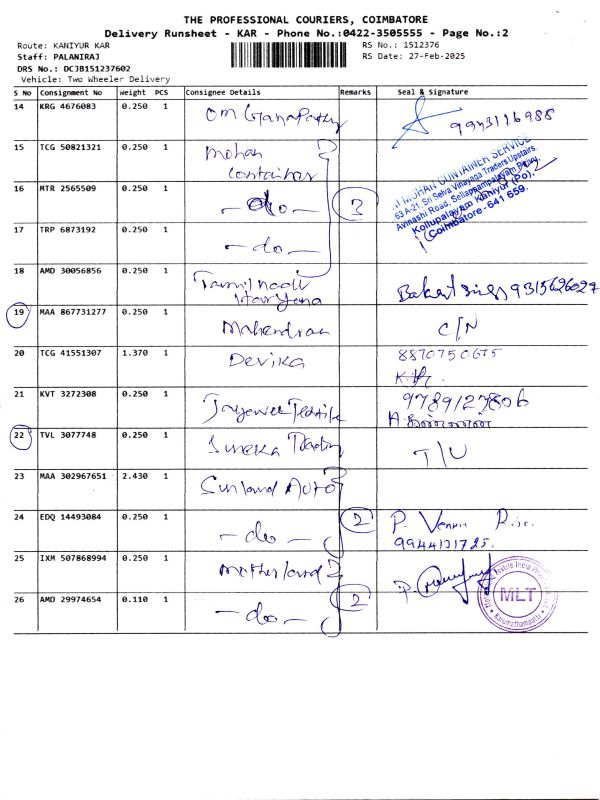 THE PROFESSIONAL COURIERS, COIMBATORE
Delivery Runsheet - KAR - Phone No.:0422-3505555 - Page No.:2
Route: KANIYUR KAR
RS No.: 1512376
Staff: PALANIRAJ
RS Date: 27-Feb-2025
DRS No.: DCJB151237602
Vehicle: Two Wheeler Delivery
S No Consignment No Weight PCS Consignee Details Remarks Seal & Signature
14 KRG 4676083 0.250 1 Om Ganapathy
15 TCG 50821321 0.250 1 Mohan Container
MOHAN CONTAINER SERVICE
63 A-21, Sri Selva Vinayaga Traders Upstairs,
Avinashi Road, Sellapsampalayam Pirivu,
Kollupalayam Kaniyur (Po),
Coimbatore - 641 659.
16 MTR 2565509 0.250 1 - do - 3
17 TRP 6873192 0.250 1 - do -
18 AMD 30056856 0.250 1 Tamil nadu Haryana 9315626027
19 MAA 867731277 0.250 1 Mahendran C/N
20 TCG 41551307 1.370 1 Devika 8870750675
21 KVT 3272308 0.250 1 9789127806
22 TVL 3077748 0.250 1 T/U
23 MAA 302967651 2.430 1 Sunland Auto
24 EDQ 14493084 0.250 1 - do - 2 P.
9944131725.
25 IXM 507868994 0.250 1 Motherland
26 AMD 29974654 0.110 1 - do - 2
MLT